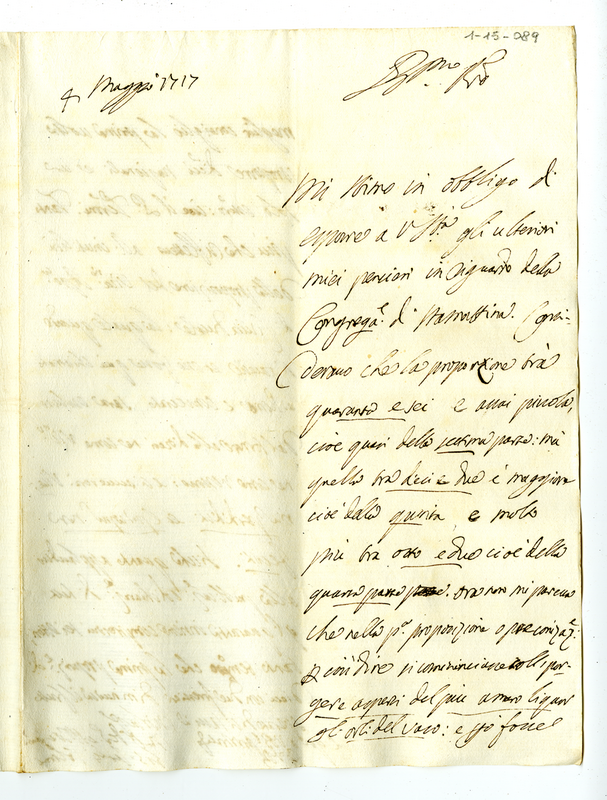 1-15-089
4 Maggio 1717
Mi stimo in obbligo di
esporre à V Sria gli ulteriori
miei pensieri in riguardo della
Congregae di stamattina. Consi-
deravo che la proporzione trà
quaranta e sei è assai piccola,
cioè quasi della settima parte: mà
quella tra dieci e due è maggiore
cioè della quinta, e molto
più tra otto e due cioè della
quarta parte. Ora non mi pareva
che nella pa proposizione o
dire si cominciasse coll spor-
gere aspersi del più amaro liquor
gli orli del vaso: e ciò fosse